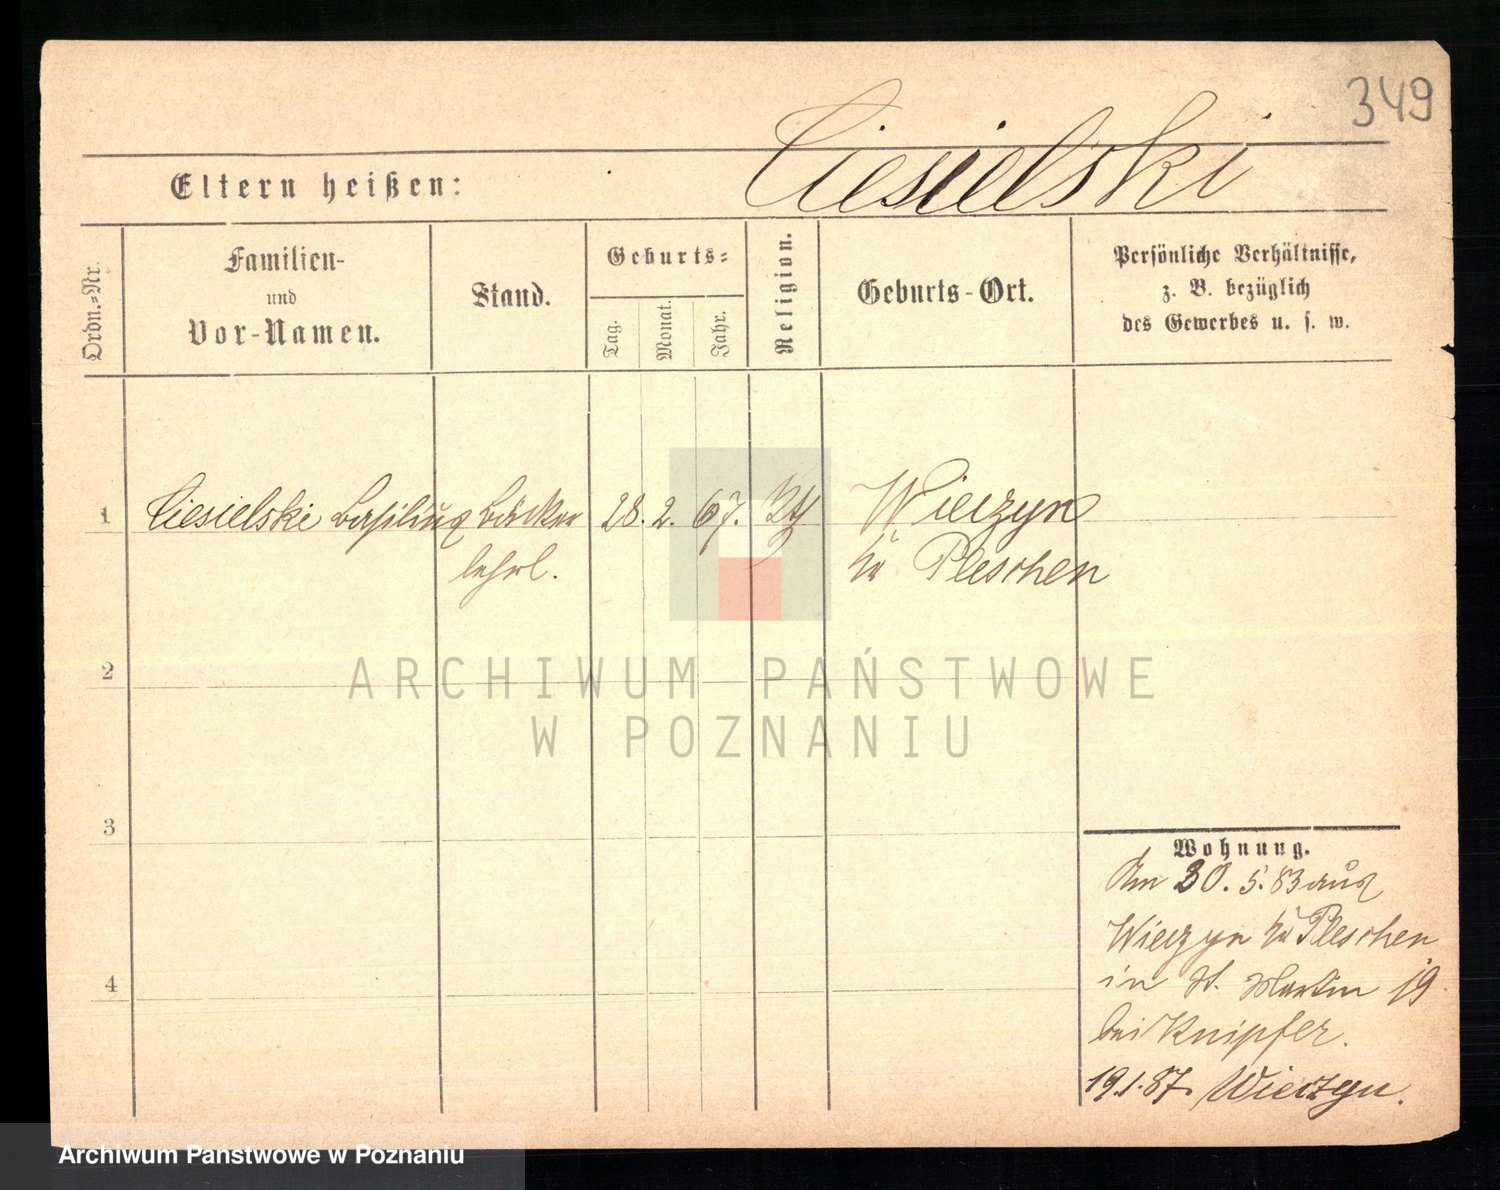 349
Ciesielski
Eltern heißen:
Ordn.-Nr.
Familien-
und
Vor-Namen.
Stand.
Geburts-
Tag.
Monat.
Jahr.
Religion.
Geburts-Ort.
Persönliche Verhältnisse,
z. B. bezüglich
des Gewerbes u. s. w.
1 Ciesielski Basilius Bäcker 28. 2. 67. Kth Wieczyn
lehrl. Kr Pleschen
2
3
4
Wohnung.
Am 30. 5. 83 aus
Wieczyn Kr Pleschen
in St. Martin 19
bei Knipfer.
19.1.87. Wieczyn.
ARCHIWUM PAŃSTWOWE
W POZNANIU
Archiwum Państwowe w Poznaniu